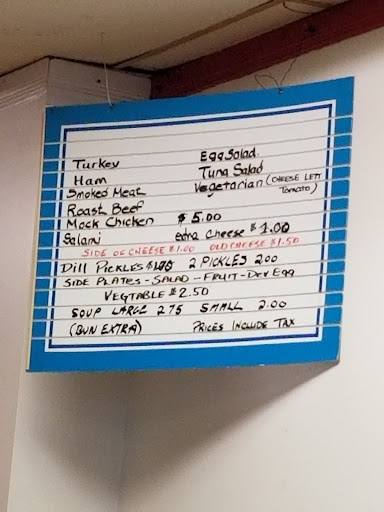 Turkey Egg Salad.
Ham Tuna Salad
Smoked Meat Vegetarian (CHEESE LETT
TOMATO)
Roast Beef
Mock Chicken $5.00
Salami extra cheese $1.00
SIDE OF CHEESE $1.00 OLD CHEESE $1.50
Dill PICKLES 2 PICKLES 2.00
SIDE PLATES - SALAD - FRUIT - DEV EGG
VEGTABLE $2.50
SOUP LARGE 2.75 SMALL 2.00
(BUN EXTRA) PRICES INCLUDE TAX